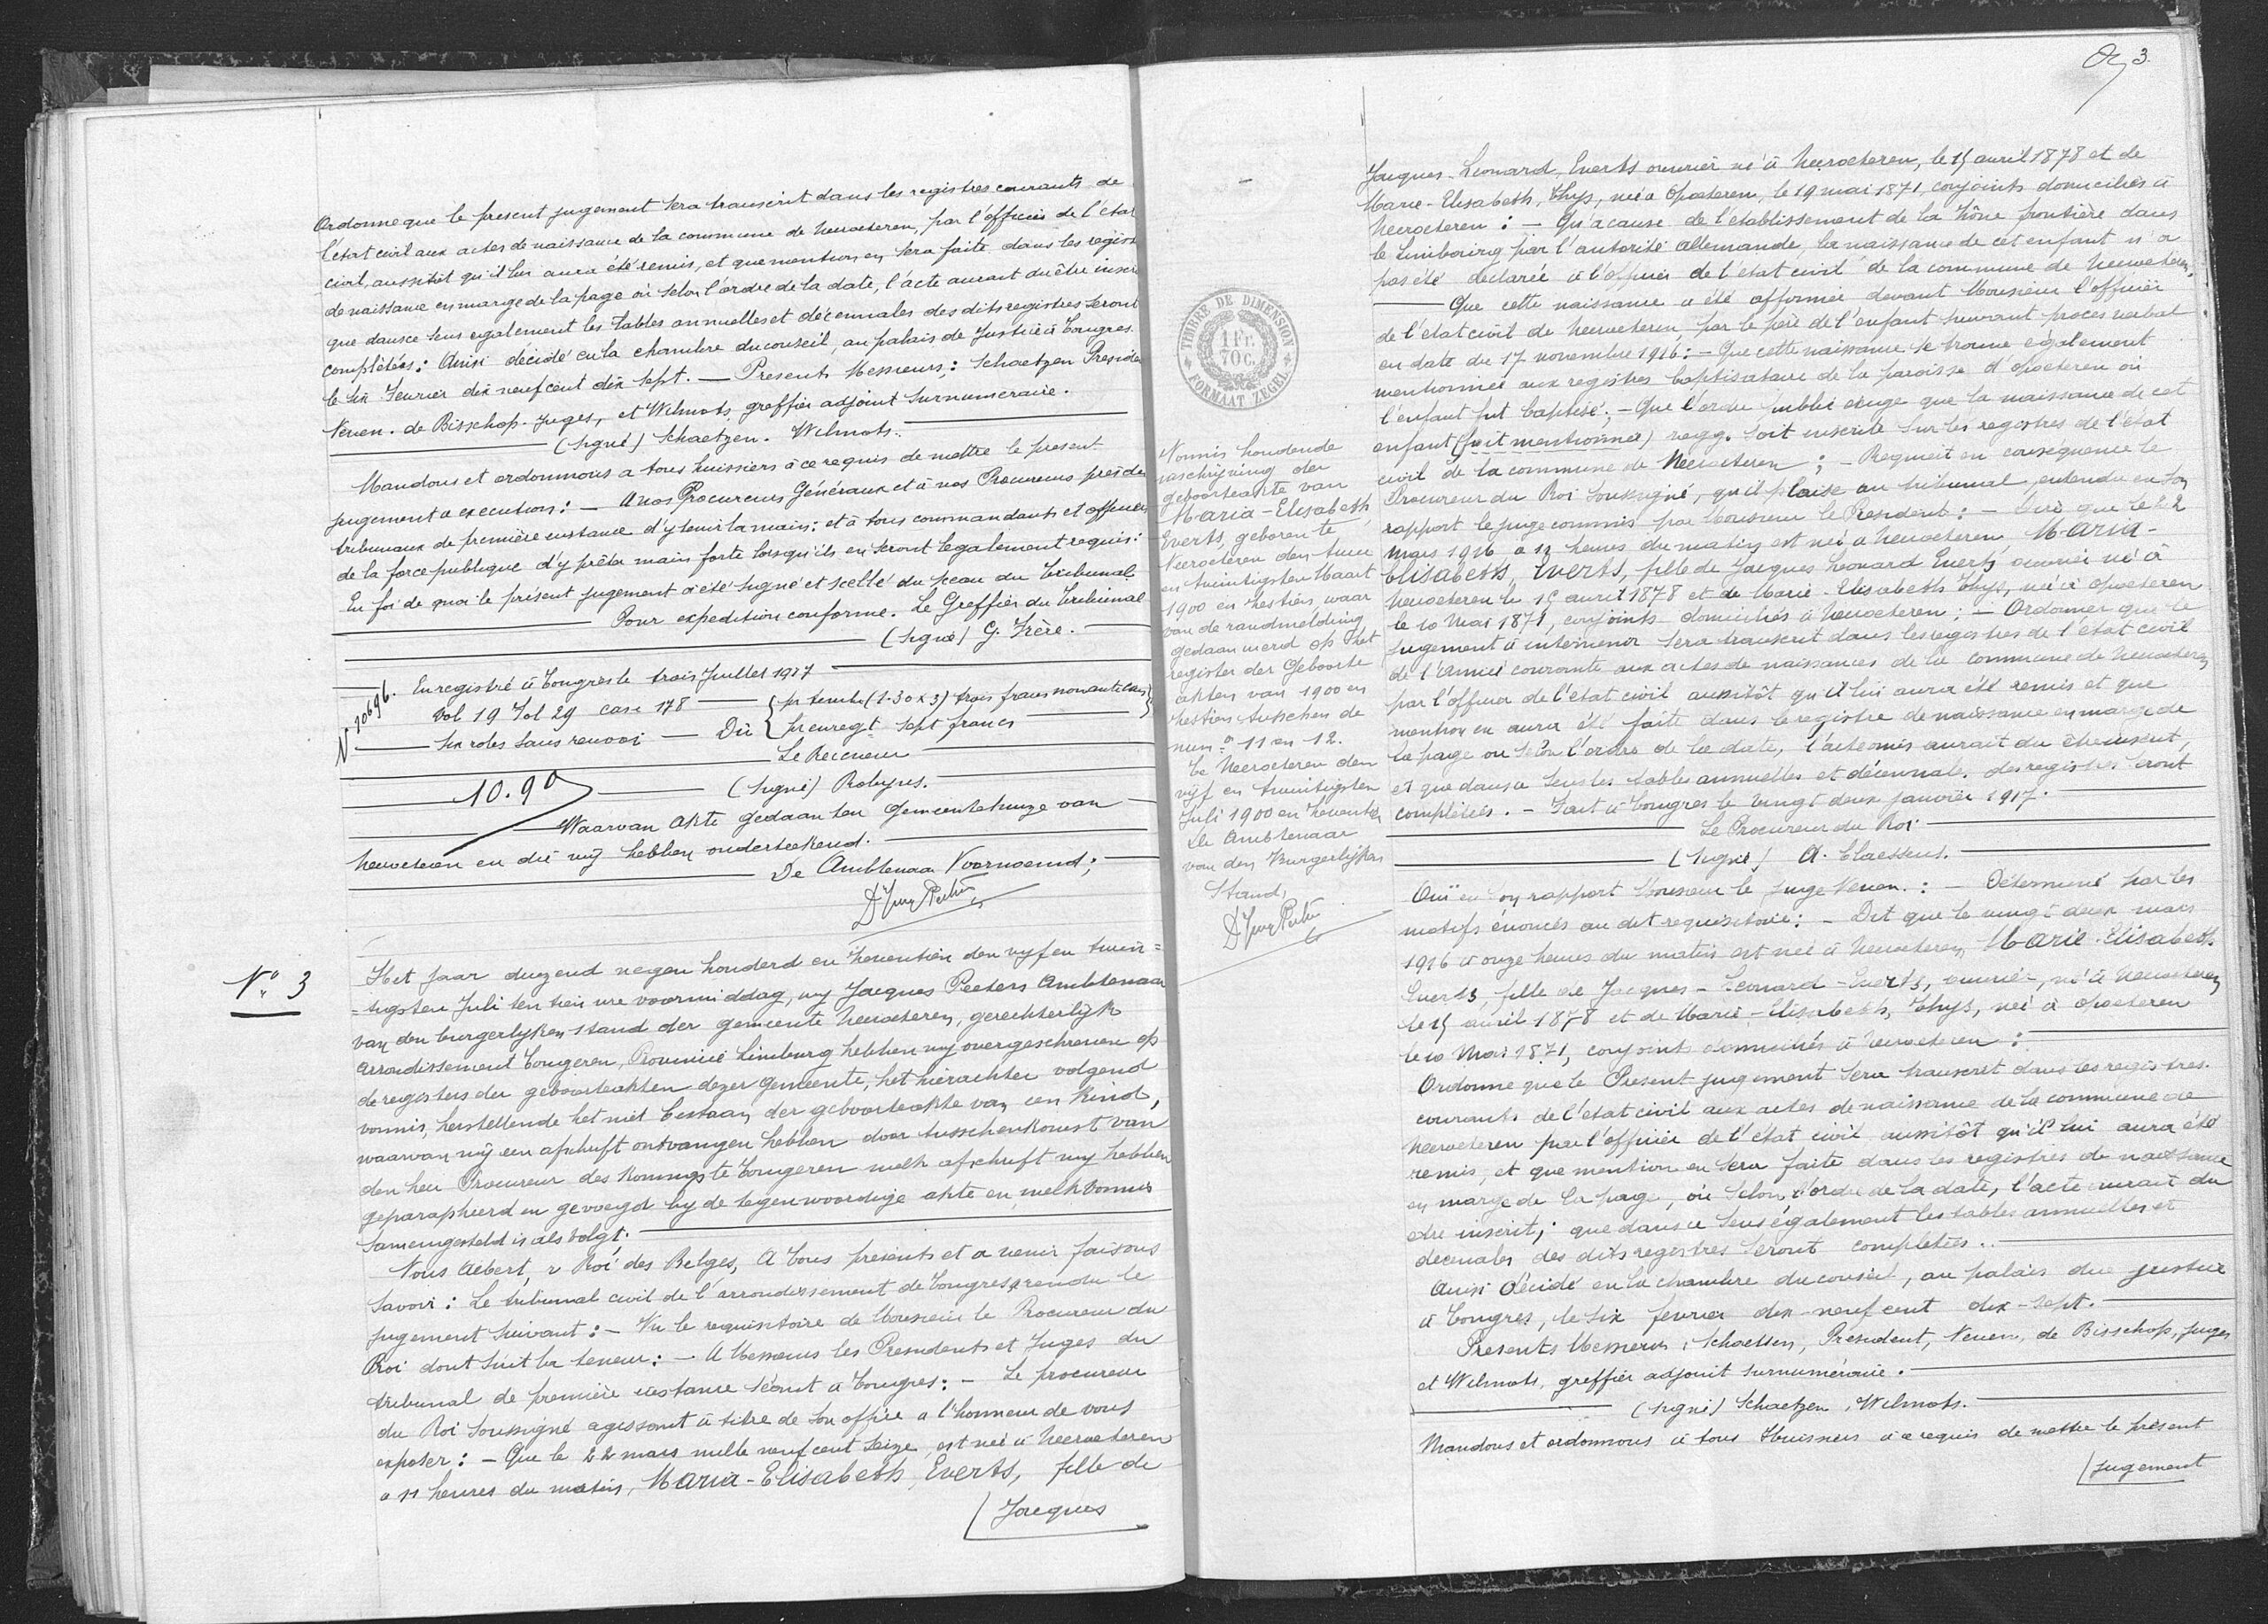 Ordonne que le present jugement sera transcrit dans les registres courants de
l'état civil aux actes de naissance de la commune de Neeroeteren, par l'officier de l'état
civil, aussitôt qu'il lui aura été remis, et que mention en sera faite dans les registres
de naissance en marge de la page où selon l'ordre de la date, l'acte aurait du être inscrit
que dans ce sens egalement les tables annuelles et décennales des dits registres seront
complétées: Ainsi décidé en la chambre du conseil, au palais de Justice à Tongres.
le six Fevrier dix neuf cent dix sept. — Presents Messieurs: Schaetzen Preside
Neven. de Bisschop. Juges, et Wilmots, greffier adjoint surnumeraire.
(signé) Schaetzen. Wilmots.
Mandons et ordonnons a tous huissiers à ce requis de mettre le present
jugement a execution: — A nos Procureurs Généraux et à nos Procureurs près de
tribunaux de première instance d'y tenir la main: et à tous commandants et officiers
de la force publique d'y prêter main forte lorsqu'ils en seront legalement requis:
En foi de quoi le présent jugement a été signé et scellé du sceau du tribunal.
Pour expedition conforme. Le Greffier du tribunal
(signé) G. Frère.
N° 20696.
Enregistré à Tongres le trois Juillet 1917
Vol 19 Fol 29 case 178 — Du { pr timbre (1-30 x 3) trois francs nonante cens
six roles sans renvoi — { pr enregt sept francs
Le Receveur
10.90 (signé) Robyns.
Waarvan akte gedaan ten Gemeentehuize van
Neeroeteren en die wij hebben onderteekend.
De Ambtenaar Voornoemd;
N° 3
Het jaar duizend negen honderd en zeventien den vijf en twin=
=tigsten Juli ten tien ure voormiddag, wij Jacques Peeters Ambtenaar
van den burgerlijken stand der gemeente Neeroeteren, gerechterlijk
Arrondissement Tongeren, Provincie Limburg hebben wij overgeschreven op
de registers der geboorteakten dezer gemeente, het hierachter volgend
vonnis, herstellende het niet bestaan der geboorteakte van een kind,
waarvan wij een afschrift ontvangen hebben door tusschenkomst van
den heer Procureur des Konings te Tongeren welk afschrift wij hebben
geparapheerd en gevoegd bij de tegenwoordige akte en welk vonnis
samengesteld is als volgt.
Nous Albert, Roi des Belges, A tous présents et a venir faisons
savoir: Le tribunal civil de l'arrondissement de Tongres, a rendu le
jugement suivant: — Vu le requisitoire de Monsieur le Procureur du
Roi dont suit la teneur: — A Messieurs les Presidents et Juges du
tribunal de première instance séant à Tongres: — Le procureur
du Roi soussigné agissant à titre de son office a l'honneur de vous
exposer: — Que le 22 mars mille neuf cent seize, est née à Neeroeteren
a 11 heures du matin, Maria-Elisabeth Everts, fille de
Jacques
3
Jacques-Léonard, Everts ouvrier né à Neeroeteren, le 15 avril 1878 et de
Marie-Elisabeth, Thys, née a Opoeteren, le 19 mai 1871, conjoints domiciliés à
Neeroeteren: — Qu'a cause de l'établissement de la zône frontière dans
le Limbourg par l'autorité Allemande, la naissance de cet enfant n'a
pas été déclarée à l'officier de l'état civil de la commune de Neeroeteren.
— Que cette naissance a été affirmée devant Monsieur l'officier
de l'état civil de Neeroeteren, par le père de l'enfant suivant procès verbal
en date du 17 novembre 1916: — Que cette naissance se trouve également
mentionnée aux registres baptistaire de la paroisse d'opoeteren où
l'enfant fut baptisé; — Que l'ordre public exige que la naissance de cet
enfant (soit mentionnée) soit inscrite sur les registres de l'état
civil de la commune de Neeroeteren; — Requiert en conséquence le
Procureur du Roi soussigné, qu'il plaise au tribunal, entendu en son
rapport le juge commis par Monsieur le President: — Dire que le 22
mars 1916 a 11 heures du matin est née a Neeroeteren Maria-
Elisabeth, Everts, fille de Jacques Léonard Everts ouvrier né à
Neeroeteren le 15 avril 1878 et de Marie-Elisabeth Thys, née à opoeteren
le 10 Mai 1871, conjoints domiciliés à Neeroeteren: — Ordonner que le
jugement à intervenir sera transcrit dans les registres de l'état civil
de l'année courante aux actes de naissances de la commune de Neeroeteren
par l'officier de l'état civil aussitôt qu'il lui aura été remis et que
mention en aura été faite dans le registre de naissance en marge de
la page ou selon l'ordre de la date, l'acte omis aurait du être inscrit,
et que dans ce sens les tables annuelles et décennales des registres seront
complétées. — Fait à Tongres le vingt deux janvier 1917.
Le Procureur du Roi
(signé) A. Claessens.
Ouï en son rapport Monsieur le juge Neven.: — Déterminé par les
motifs énoncés au dit requisitoire: — Dit que le vingt deux mars
1916 à onze heures du matin est née à Neeroeteren, Marie-Elisabeth
Everts, fille de Jacques-Léonard-Everts, ouvrier, né à Neeroeteren
le 15 avril 1878 et de Marie-Elisabeth, Thys, née à opoeteren
le 10 Mai 1871, conjoints domiciliés à Neeroeteren:
Ordonne que le Présent jugement sera transcrit dans les registres
courants de l'état civil aux actes de naissance de la commune de
Neeroeteren par l'officier de l'état civil aussitôt qu'il lui aura été
remis, et que mention en sera faite dans les registres de naissance
en marge de la page, où selon l'ordre de la date, l'acte aurait du
etre inscrit; que dans ce sens également les tables annuelles et
decenales des dits registres seront complétées.
Ainsi décidé en la chambre du conseil, au palais de justice
à Tongres, le six fevrier dix-neuf cent dix-sept.
Presents Messieurs, Schaetzen, President, Neven, de Bisschop, juges
et Wilmots, greffier adjoint surnuméraire.
(signé) Schaetzen, Wilmots.
Mandons et ordonnons à tous Huissiers à ce requis de mettre le présent
jugement
TIMBRE DE DIMENSION
1 Fr.
70 c.
FORMAAT ZEGEL
Vonnis houdende
inschrijving der
geboorteakte van
Maria-Elisabeth
Everts, geboren te
Neeroeteren den twee
en twintigsten Maart
1900 en zestien, waar
van de randmelding
gedaan werd op het
register der Geboorte
akten van 1900 en
zestien tusschen de
num.° 11 en 12.
Te Neeroeteren den
vijf en twintigsten
Juli 1900 en zeventien
De Ambtenaar
van den Burgerlijken
Stand,